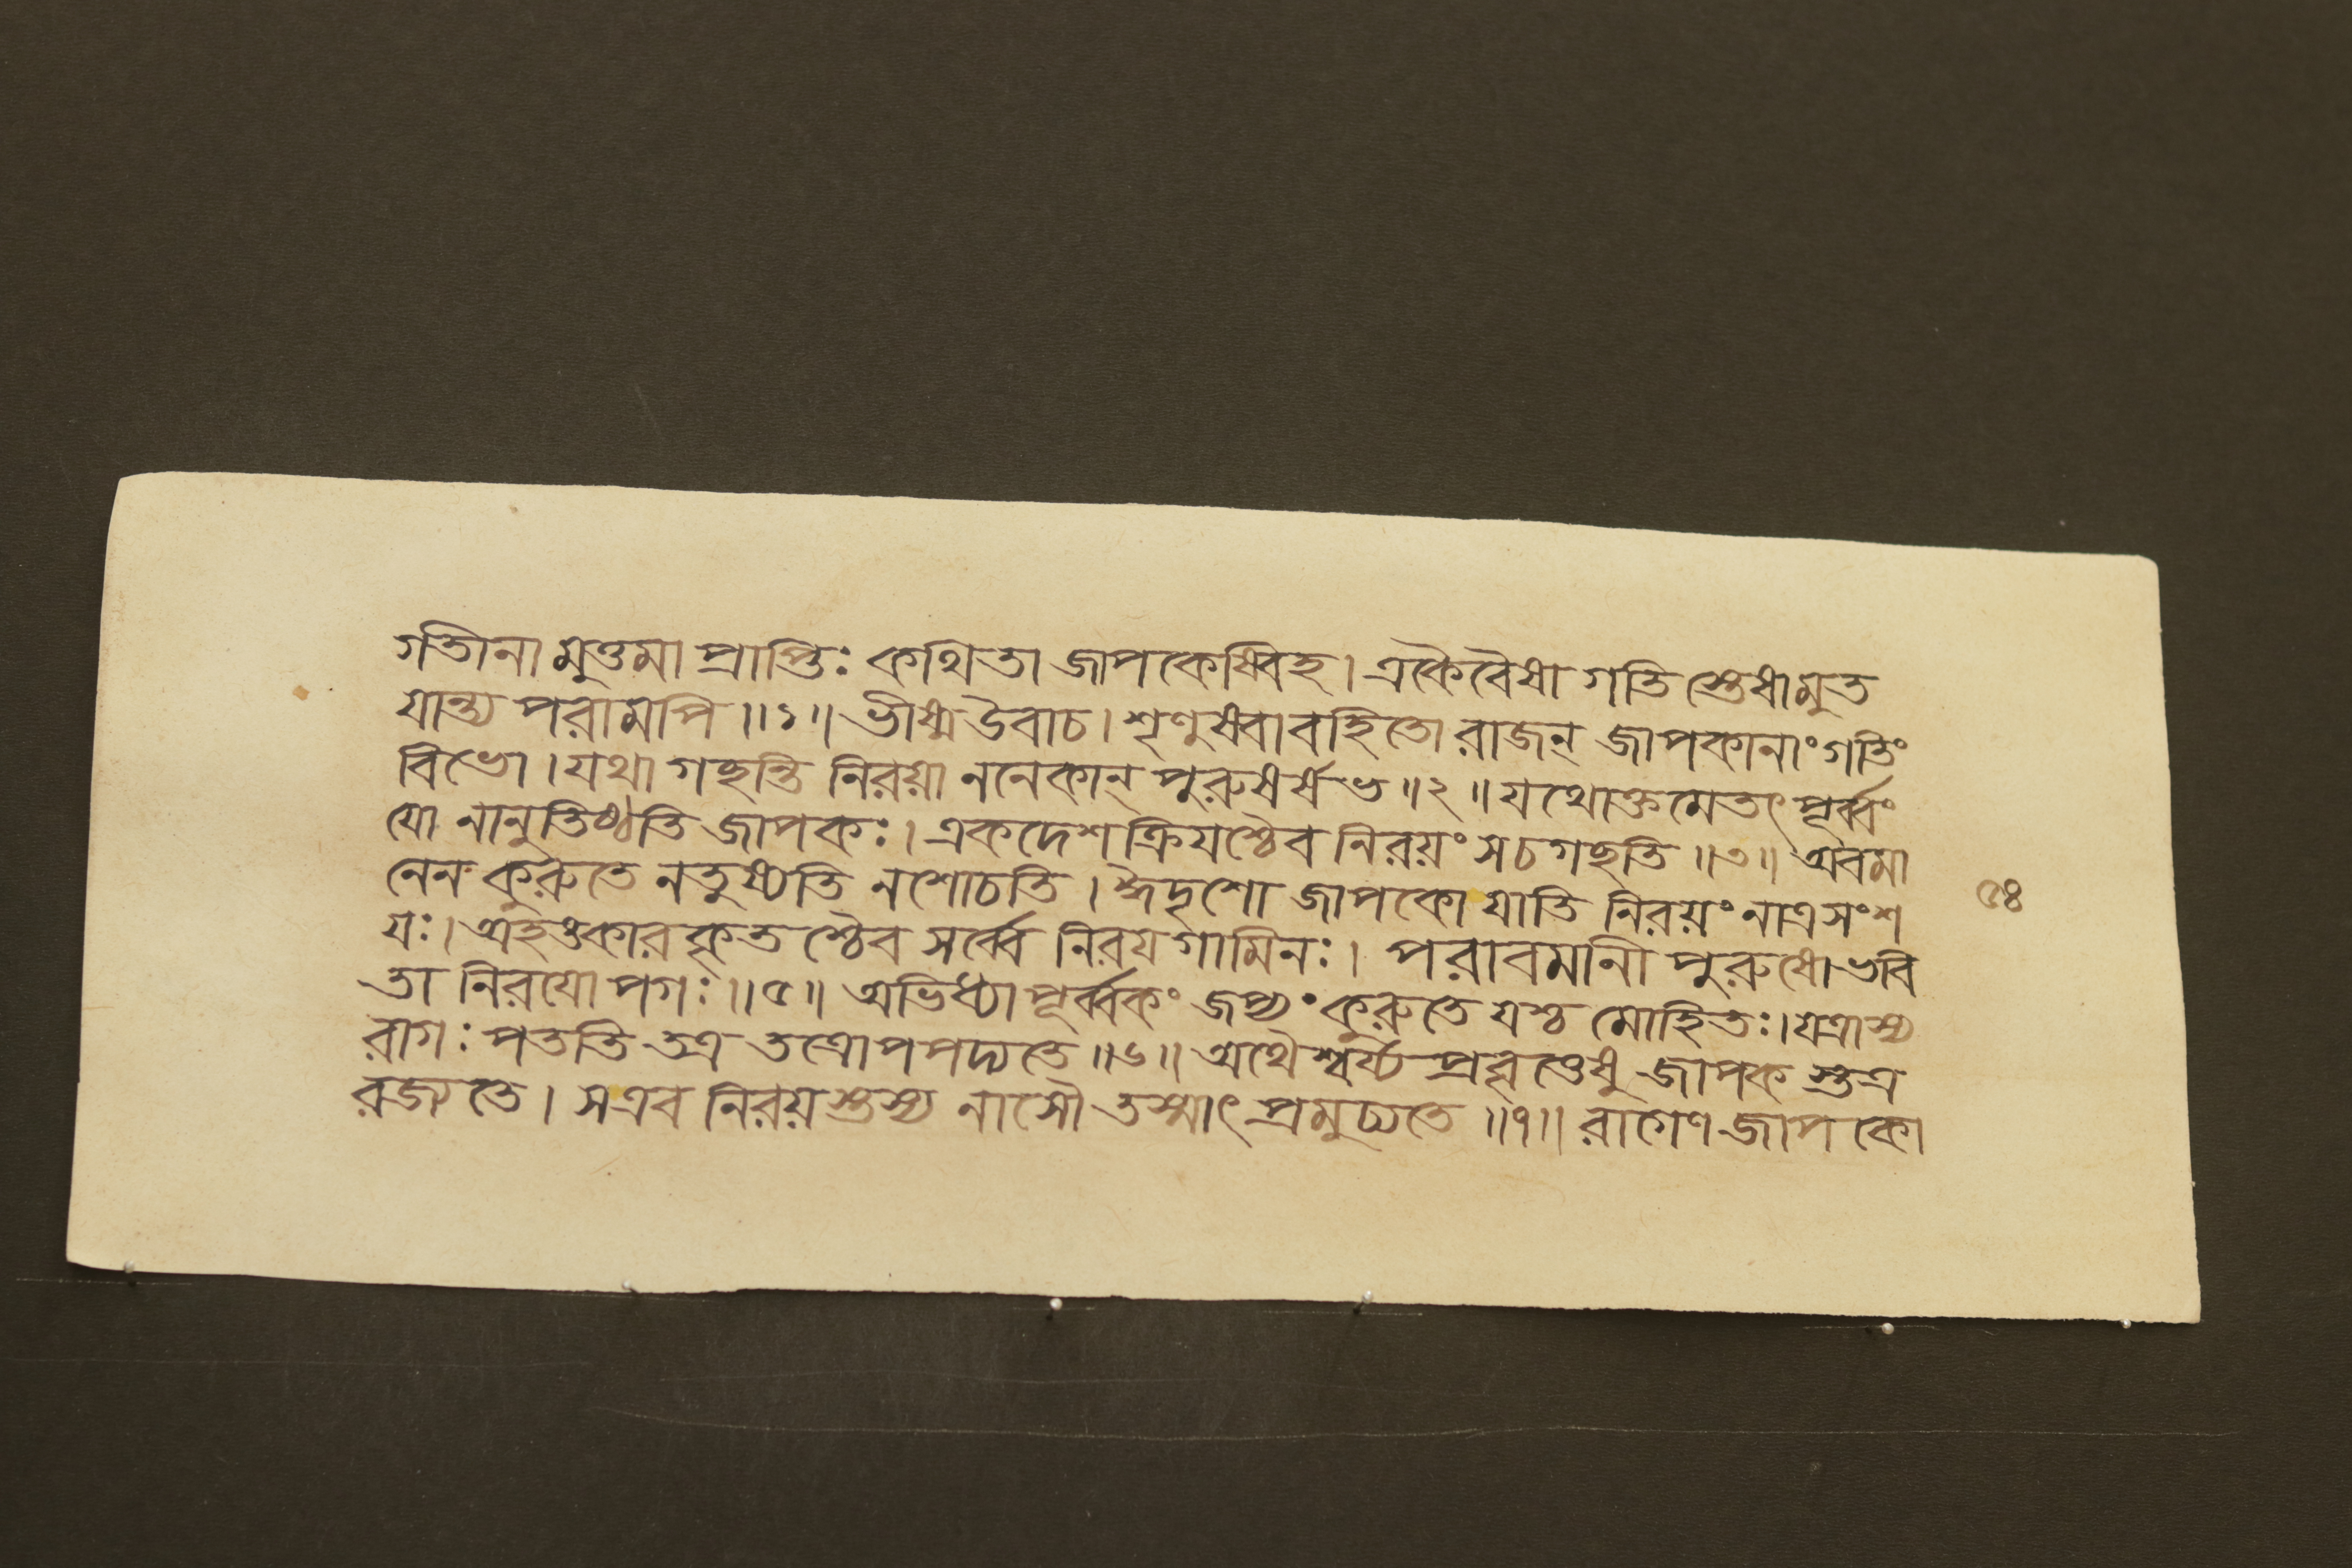 গতীনা মুত্তমা প্রাপ্তিঃ কথিতা জাপকেষ্বিহ। একৈবৈষা গতি স্তেষামুত
যান্ত্য পরামপি॥১॥ ভীষ্ম উবাচ। শৃণুষ্বাবহিতো রাজন্ জাপকানাং গতিং
বিভো। যথা গচ্ছন্তি নিরয়া ননেকান্ পুরুষর্ষভ॥২॥ যথোক্তমেতৎ পূর্ব্বং
যো নানুতিষ্ঠতি জাপকঃ। একদেশক্রিযশ্চৈব নিরয়ং সচগচ্ছতি॥৩॥ অবমা
নেন কুরুতে নতুষ্যতি নশোচতি। ঈদৃশো জাপকো যাতি নিরয়ং নাত্রসংশ
যঃ। অহঙ্কারকৃত শ্চৈব সর্ব্বে নিরযগামিনঃ। পরাবমানী পুরুষো ভবি
তা নিরযোপগঃ॥৫॥ অভিধ্যাপূর্ব্বকং জপ্যং কুরুতে যশ্চ মোহিতঃ। যত্রাস্য
রাগঃ পততি তত্র তত্রোপপদ্যতে॥৬॥ অথৈশ্বর্য্য প্রবৃত্তেষু জাপক স্তত্র
রজ্যতে। সএব নিরয়স্তস্য নাসৌ তস্মাৎ প্রমুচ্যতে॥৭॥ রাগেণ জাপকো
৫৪